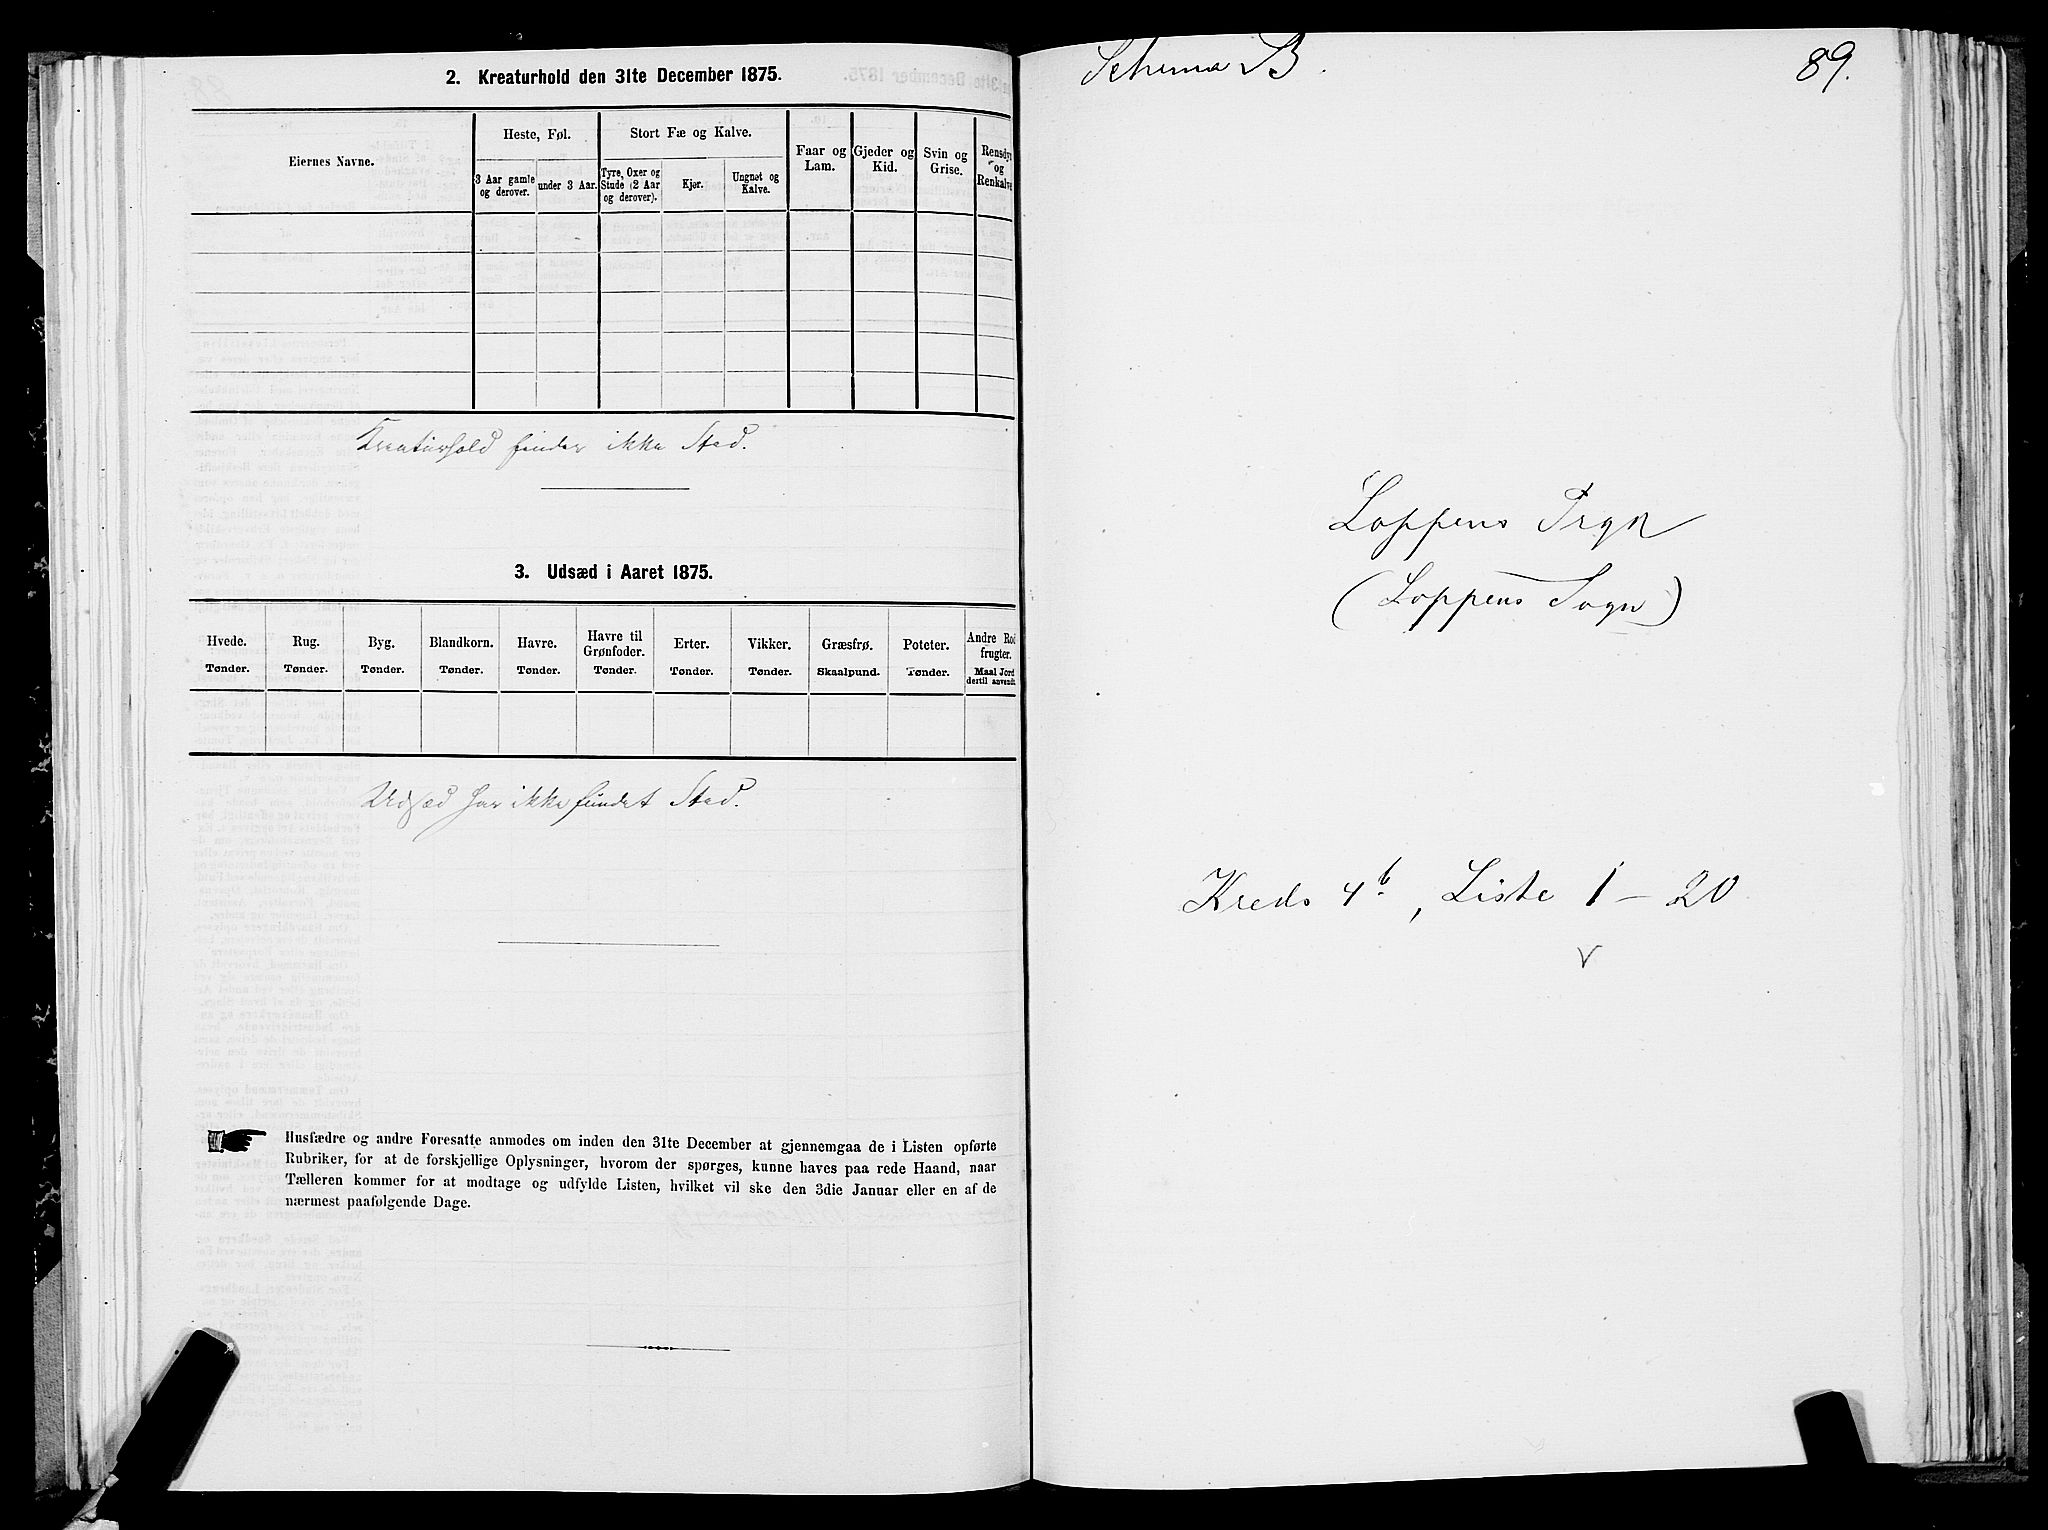 2. Kreaturhold den 31te December 1875.
Eiernes Navne.
Heste, Føl.
Stort Fæ og Kalve.
Faar og
Lam.
Gjeder og
Kid.
Svin og
Grise.
Rensdyr
og
Renkalve
3 Aar gamle
og derover.
under 3 Aar.
Tyre, Oxer og
Stude (2 Aar
og derover).
Kjør.
Ungnøt og
Kalve.
Kreaturhold finder ikke Sted.
3. Udsæd i Aaret 1875.
Hvede.
Rug.
Byg.
Blandkorn.
Havre.
Havre til
Grønfoder.
Erter.
Vikker.
Græsfrø.
Poteter.
Andre Rod
frugter.
Tønder.
Tønder.
Tønder.
Tønder.
Tønder.
Tønder.
Tønder.
Tønder.
Skaalpund.
Tønder.
Maal Jord
dertil anvendt.
Udsæd har ikke fundet Sted.
Husfædre og andre Foresatte anmodes om inden den 31te December at gjennemgaa de i Listen opførte
Rubriker, for at de forskjellige Oplysninger, hvorom der spørges, kunne haves paa rede Haand, naar
Tælleren kommer for at modtage og udfylde Listen, hvilket vil ske den 3die Januar eller en af de
nærmest paafølgende Dage.
Schema B.
89.
Loppens Prgn
(Loppens Sogn)
Kreds 4b, Liste 1 - 20